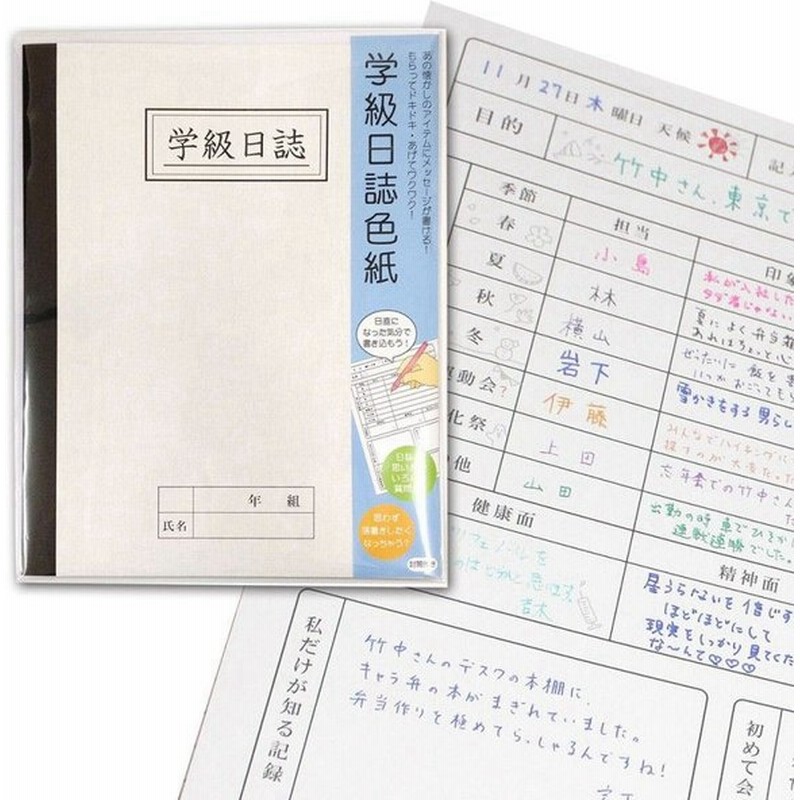 学級日誌
年 組
氏名
学級日誌色紙
あの懐かしのアイテムにメッセージが書ける!
もらってドキドキ・あげてワクワク!
日直に
なった気分で
書き込もう!
思わず
落書きしたく
なっちゃう?
封筒付き
11月27日木曜日 天候
目的
竹中さん、東京で
季節 担当
春 小島
夏 林
秋 横山
冬 岩下
運動会? 伊藤
化祭 上田
の他 山田
私が入社した
夏によく弁当箱
あれはちょっと心
雪かきをする男らし
忘年会での竹中さん
出勤の時車でひそか
連敗連勝でした。
健康面
精神面
昼うらないを信じす
ほどほどにして
現実をしっかり見てくだ
な〜んて♡♡♡
私だけが知る記録
竹中さんのデスクの本棚に、
キャラ弁の本がまぎれていました。
弁当作りを極めてらっしゃるんですね!
初めて会